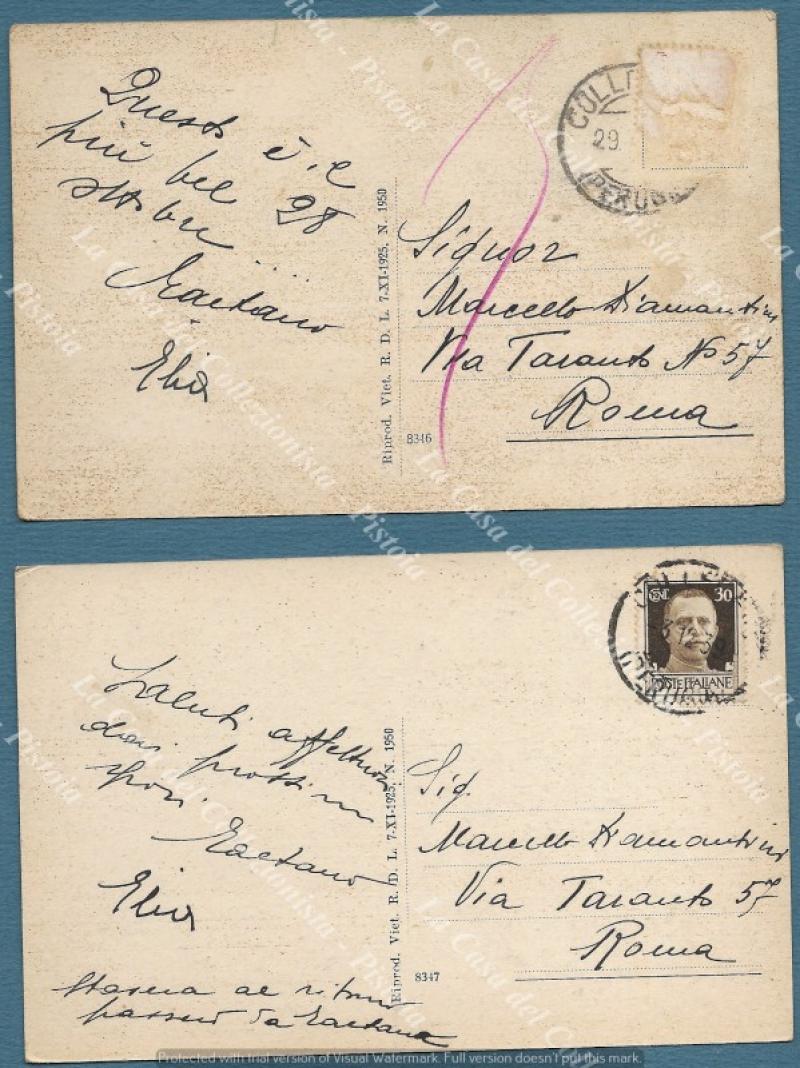 Questo è il
più bel 28
ottobre....
Gaetano
Elia
Riprod. Viet. R. D. L. 7-XI-1925, N. 1950
8346
COLLE
29.
(PERUGIA
Signor
Marcello Diamantini
Via Taranto N° 57
Roma
CENT. 30
POSTE ITALIANE
(PERUGIA
Saluti affettuosi
dai prossimi
sposi.
Gaetano
Elia
Stasera al ritorno
passerò da Gaetana
Riprod. Viet. R. D. L. 7-XI-1925, N. 1950
8347
Sig.
Marcello Diamantini
Via Taranto 57
Roma
La Casa del Collezionista - Pistoia
Protected with trial version of Visual Watermark. Full version doesn't put this mark.